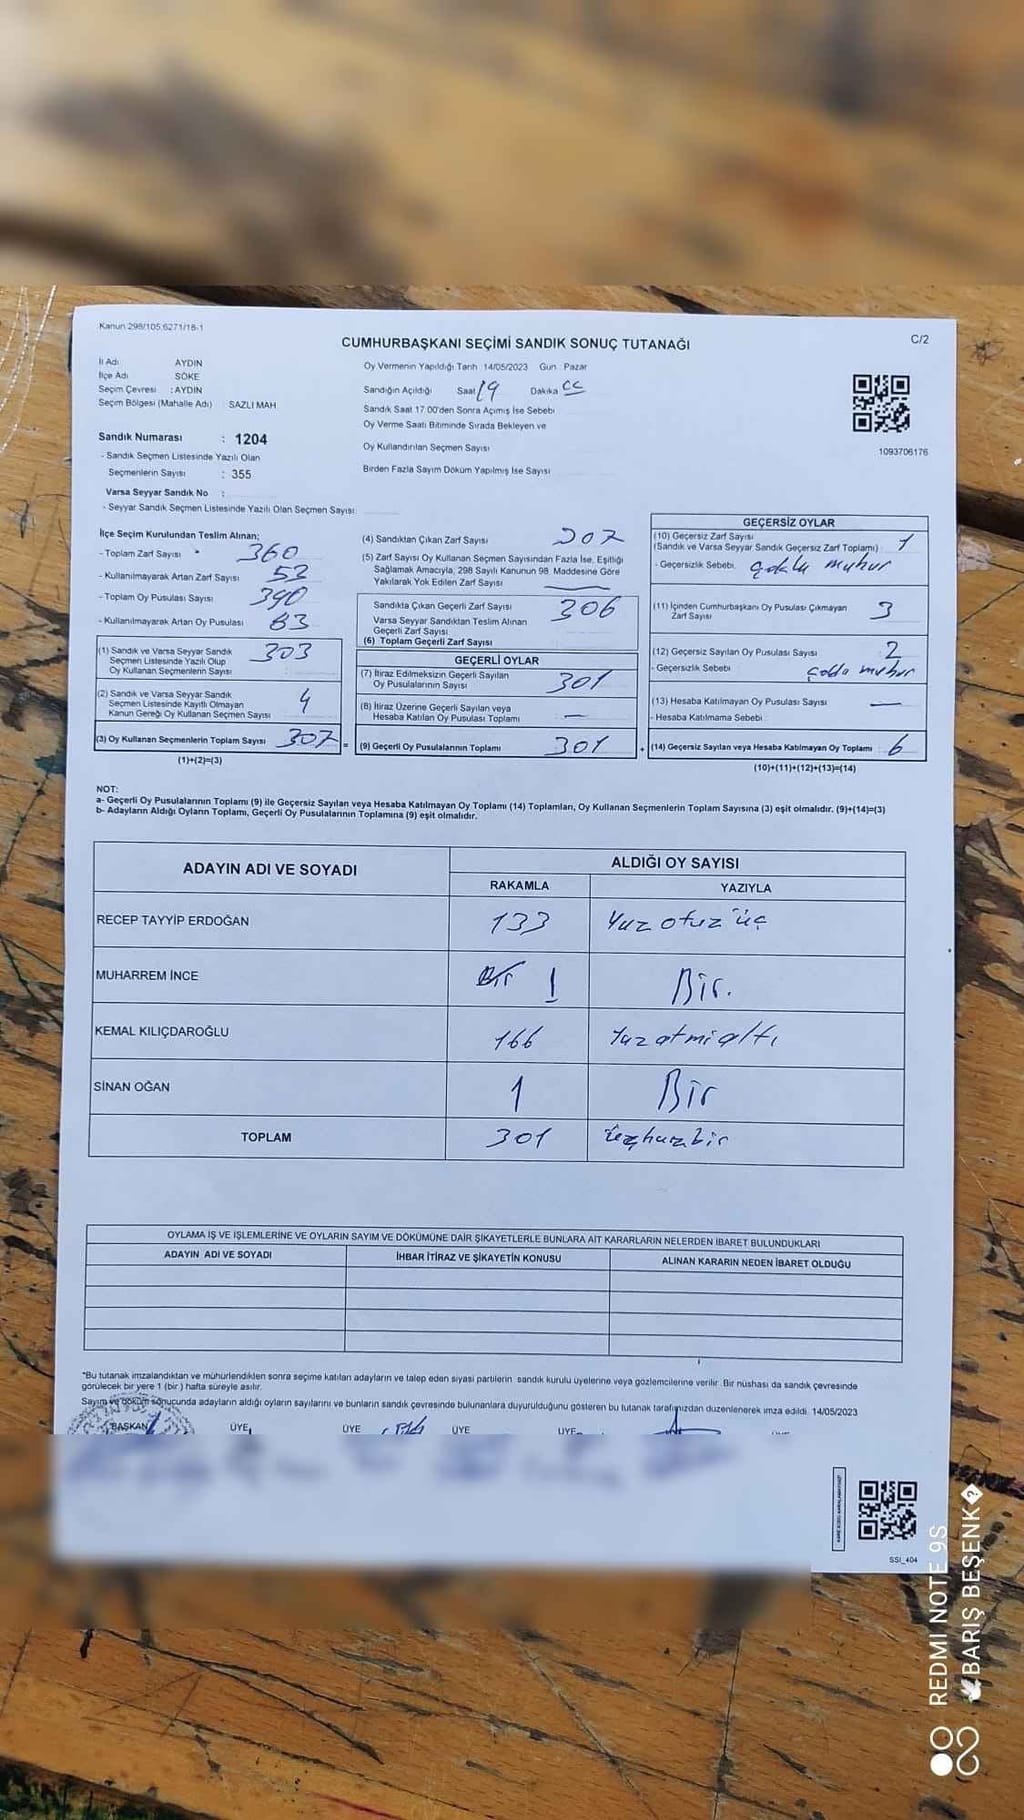 Kanun 298/105,6271/18-1
CUMHURBAŞKANI SEÇİMİ SANDIK SONUÇ TUTANAĞI
C/2
İl Adı AYDIN
İlçe Adı SÖKE
Seçim Çevresi : AYDIN
Seçim Bölgesi (Mahalle Adı) SAZLI MAH
Sandık Numarası : 1204
- Sandık Seçmen Listesinde Yazılı Olan
Seçmenlerin Sayısı : 355
Varsa Seyyar Sandık No :
- Seyyar Sandık Seçmen Listesinde Yazılı Olan Seçmen Sayısı
Oy Vermenin Yapıldığı Tarih 14/05/2023 Gün Pazar
Sandığın Açıldığı Saat 19 Dakika
Sandık Saat 17.00'den Sonra Açımış İse Sebebi
Oy Verme Saati Bitiminde Sırada Bekleyen ve
Oy Kullandırılan Seçmen Sayısı
Birden Fazla Sayım Döküm Yapılmış İse Sayısı
1093706176
İlçe Seçim Kurulundan Teslim Alınan;
- Toplam Zarf Sayısı 360
- Kullanılmayarak Artan Zarf Sayısı 53
- Toplam Oy Pusulası Sayısı 390
- Kullanılmayarak Artan Oy Pusulası 83
(1) Sandık ve Varsa Seyyar Sandık
Seçmen Listesinde Yazılı Olup
Oy Kullanan Seçmenlerin Sayısı 303
(2) Sandık ve Varsa Seyyar Sandık
Seçmen Listesinde Kayıtlı Olmayan
Kanun Gereği Oy Kullanan Seçmen Sayısı 4
(3) Oy Kullanan Seçmenlerin Toplam Sayısı 307 =
(1)+(2)=(3)
(4) Sandıktan Çıkan Zarf Sayısı 307
(5) Zarf Sayısı Oy Kullanan Seçmen Sayısından Fazla İse, Eşitliği
Sağlamak Amacıyla, 298 Sayılı Kanunun 98. Maddesine Göre
Yakılarak Yok Edilen Zarf Sayısı —
Sandıkta Çıkan Geçerli Zarf Sayısı 306
Varsa Seyyar Sandıktan Teslim Alınan
Geçerli Zarf Sayısı
(6) Toplam Geçerli Zarf Sayısı
GEÇERLİ OYLAR
(7) İtiraz Edilmeksizin Geçerli Sayılan
Oy Pusulalarının Sayısı 301
(8) İtiraz Üzerine Geçerli Sayılan veya
Hesaba Katılan Oy Pusulası Toplamı —
(9) Geçerli Oy Pusulalarının Toplamı 301 +
GEÇERSİZ OYLAR
(10) Geçersiz Zarf Sayısı
(Sandık ve Varsa Seyyar Sandık Geçersiz Zarf Toplamı) 1
- Geçersizlik Sebebi. çoklu muhur
(11) İçinden Cumhurbaşkanı Oy Pusulası Çıkmayan
Zarf Sayısı 3
(12) Geçersiz Sayılan Oy Pusulası Sayısı 2
- Geçersizlik Sebebi muhur
(13) Hesaba Katılmayan Oy Pusulası Sayısı —
- Hesaba Katılmama Sebebi
(14) Geçersiz Sayılan veya Hesaba Katılmayan Oy Toplamı 6
(10)+(11)+(12)+(13)=(14)
NOT:
a- Geçerli Oy Pusulalarının Toplamı (9) ile Geçersiz Sayılan veya Hesaba Katılmayan Oy Toplamı (14) Toplamları, Oy Kullanan Seçmenlerin Toplam Sayısına (3) eşit olmalıdır. (9)+(14)=(3)
b- Adayların Aldığı Oyların Toplamı, Geçerli Oy Pusulalarının Toplamına (9) eşit olmalıdır.
ADAYIN ADI VE SOYADI ALDIĞI OY SAYISI
RAKAMLA YAZIYLA
RECEP TAYYİP ERDOĞAN 133 Yuz otuz üç
MUHARREM İNCE Bir 1 Bir.
KEMAL KILIÇDAROĞLU 166 Yuz atmiş altı
SİNAN OĞAN 1 Bir
TOPLAM 301 üçyuzbir
OYLAMA İŞ VE İŞLEMLERİNE VE OYLARIN SAYIM VE DÖKÜMÜNE DAİR ŞİKAYETLERLE BUNLARA AİT KARARLARIN NELERDEN İBARET BULUNDUKLARI
ADAYIN ADI VE SOYADI İHBAR İTİRAZ VE ŞİKAYETİN KONUSU ALINAN KARARIN NEDEN İBARET OLDUĞU
*Bu tutanak imzalandıktan ve mühürlendikten sonra seçime katılan adayların ve talep eden siyasi partilerin sandık kurulu üyelerine veya gözlemcilerine verilir. Bir nüshası da sandık çevresinde
görülecek bir yere 1 (bir ) hafta süreyle asılır.
Sayım ve döküm sonucunda adayların aldığı oyların sayılarını ve bunların sandık çevresinde bulunanlara duyurulduğunu gösteren bu tutanak tarafımızdan düzenlenerek imza edildi. 14/05/2023
BAŞKAN ÜYE ÜYE ÜYE ÜYE
SSI_404
REDMI NOTE 9S
BARIŞ BEŞENK